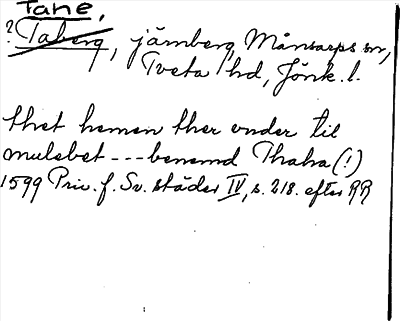 Tahe,
? Taberg, järnberg, Månsarps sn,
Tveta hd, Jönk. l.
thet hemen ther vnder til
mulebet --- benemd Thaha (!)
1599 Priv. f. Sv. städer IV, s. 218. efter RR